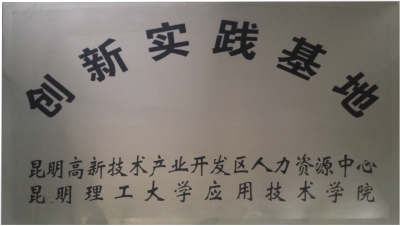 创新实践基地
昆明高新技术产业开发区人力资源中心
昆明理工大学应用技术学院